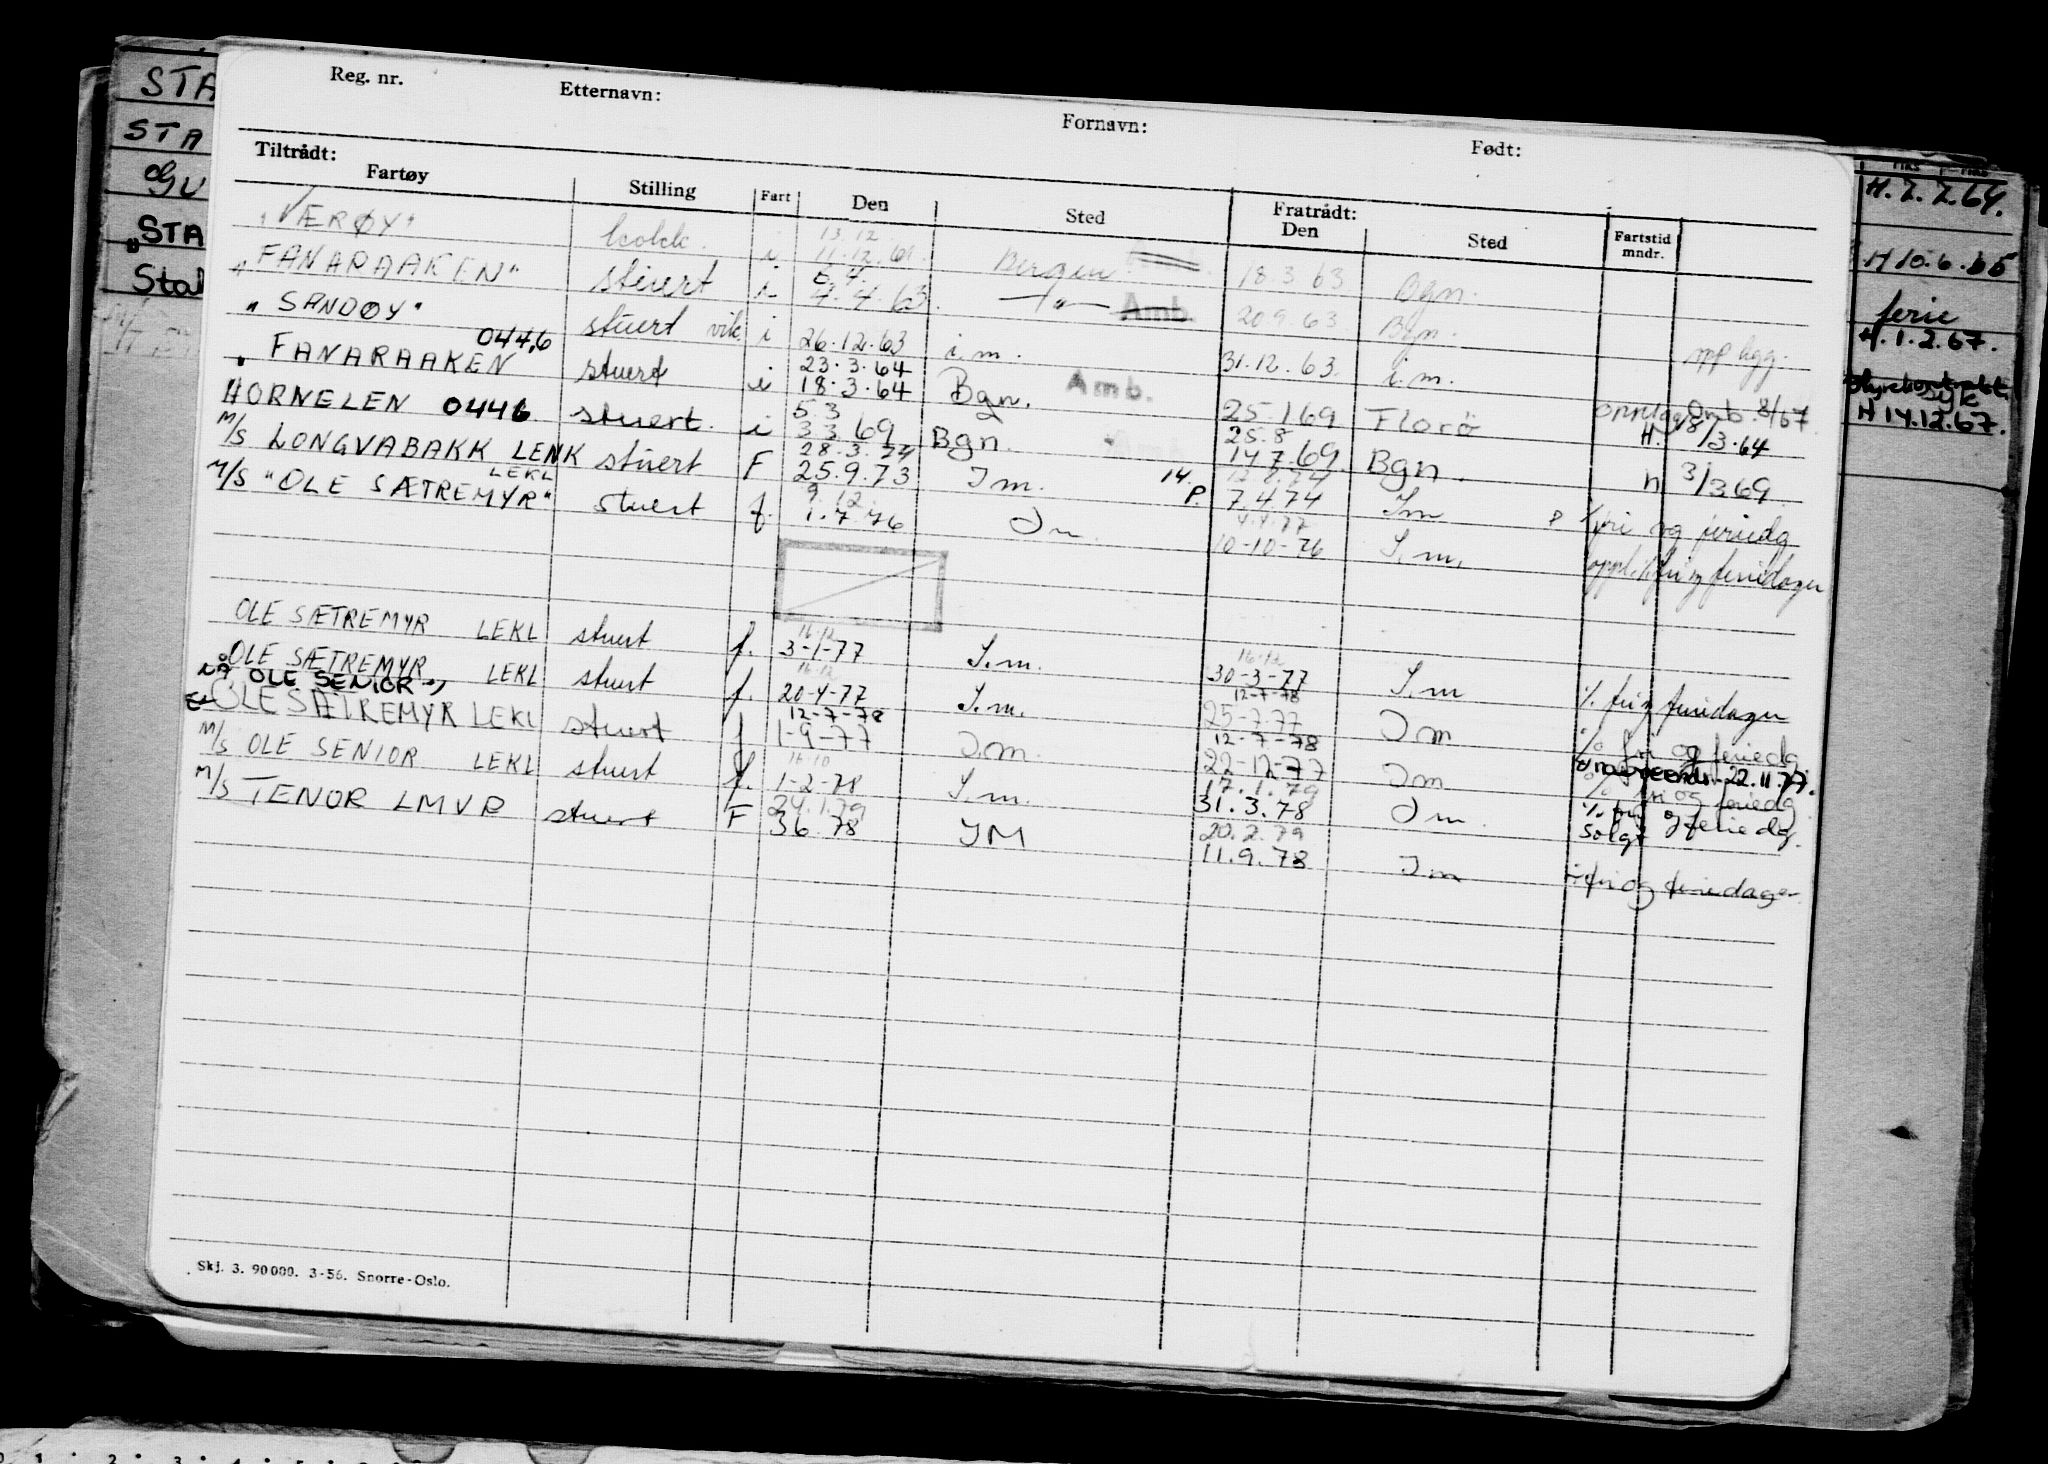 Reg. nr. Etternavn: Fornavn: Født:
Tiltrådt: Fratrådt:
Fartøy Stilling Fart Den Sted Den Sted Fartstid mndr.
"VÆRØY" kokk. i 13.12 11.12.61. Bergen 18.3.63 Bgn.
"FANARAAKEN" stuert i 5.4. 4.4.63. —"— Amb. 20.9.63 Bgn. opp
"SANDØY" stuert vik. i 26.12.63 i.m. 31.12.63. i.m.
FANARAAKEN 0446 stuert i 23.3.64 18.3.64 Bgn. Amb. 25.1.69 Florö Omb. 8/67 H. 18/3.64
HORNELEN 0446 stuert. i 5.3 3.3.69 Bgn. 25.8 14.7.69 Bgn. h 3/3 69
M/S LONGVABAKK LENK stuert F 28.3.74 25.9.73 Im. 14. P. 12.8.74 7.4.74 Im P % fri og feriedg
M/S "OLE SÆTREMYR" LEKL stuert f. 9.12. 1.7.76 Im. 4.4.77 10-10-76 I.m. oppl. % fri og feriedager
OLE SÆTREMYR LEKL stuert f. 16.12 3-1-77 I.m. 16.12 30-3-77 I.m % fri og feriedager
OLE SÆTREMYR LEKL stuert f. 16.12 20-4-77 I.m. 12-7-78 25-7-77 Im % fri og feriedg
NÅ OLE SENIOR
OLE SÆTREMYR LEKL stuert f 12-7-78 1-9-77 I.m. 12-7-78 22-12-77 Im navneendr. 22.11.77. % fri og feriedg
M/S OLE SENIOR LEKL stuert f. 16.10 1-2-78 I.m. 17.1.79 31.3.78 Im. % fri og feriedg. Solgt
M/S TENOR LMVR stuert F 24.1.79 3.6.78 IM 20.2.79 11.9.78 Im % fri og feriedager
Skj. 3. 90000. 3-56. Snorre-Oslo.
STA
STA
GU
"STA
Stal
H. 2.2.64.
H 10.6.65
ferie
H. 1.2.67.
syk
H 14.12.67.
0 1 2 3 4 5